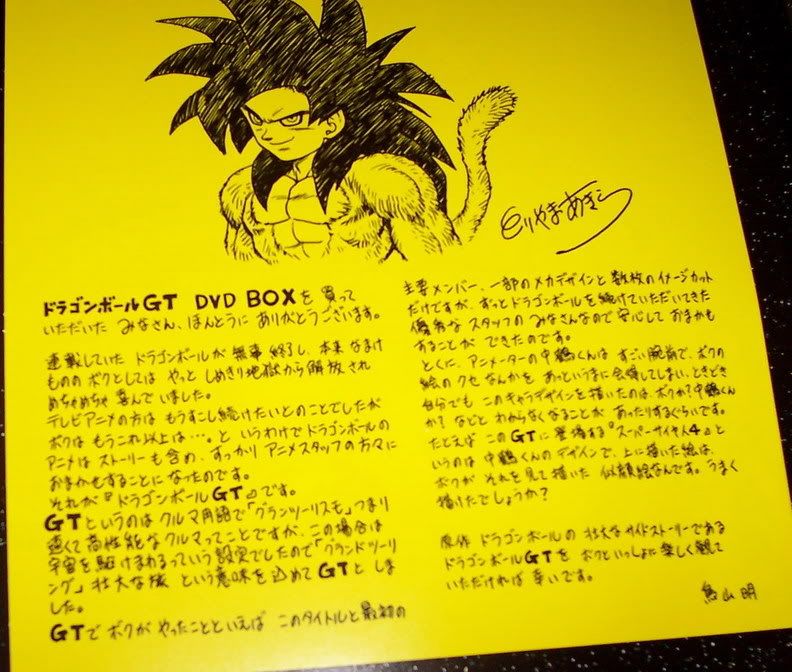 とりやまあきら
ドラゴンボールGT DVD BOXを買って
いただいた みなさん、ほんとうに ありがとうございます。
連載していた ドラゴンボールが 無事 終了し、本来 なまけ
ものの ボクとしては やっと しめきり地獄から解放され
めちゃめちゃ 喜んでいました。
テレビアニメの方は もうすこし続けたいとのことでしたが
ボクは もうこれ以上は…。と いうわけで ドラゴンボールの
アニメは ストーリーも含め、すっかり アニメスタッフの方々に
おまかせすることに なったのです。
それが『ドラゴンボールGT』です。
GTというのは クルマ用語で「グランツーリスモ」つまり
速くて高性能なクルマってことですが、この場合は
宇宙を駆けまわるっていう設定でしたので「グランドツーリ
ング」壮大な旅 という意味を込めてGTとしま
した。
GTで ボクが やったことといえば このタイトルと最初の
主要メンバー、一部のメカデザインと 数枚のイメージカット
だけですが、ずっとドラゴンボールを続けていただいてきた
優秀な スタッフの みなさんなので安心して おまかせ
することが できたのです。
とくに、アニメーターの中鶴くんは すごい腕前で、ボクの
絵のクセ なんかを あっというまに会得してしまい、ときどき
自分でも このキャラデザインを描いたのは、ボクか?中鶴くん
か? などと わからなくなることが あったりするぐらいです。
たとえば このGTに登場する『スーパーサイヤ人4』と
いうのは 中鶴くんのデザインで、上に描いた絵は、
ボクが それを見て描いた 似顔絵なんです。うまく
描けたでしょうか?
原作 ドラゴンボールの 壮大なサイドストーリーである
ドラゴンボールGTを ボクといっしょに楽しく観て
いただければ 幸いです。
鳥山明